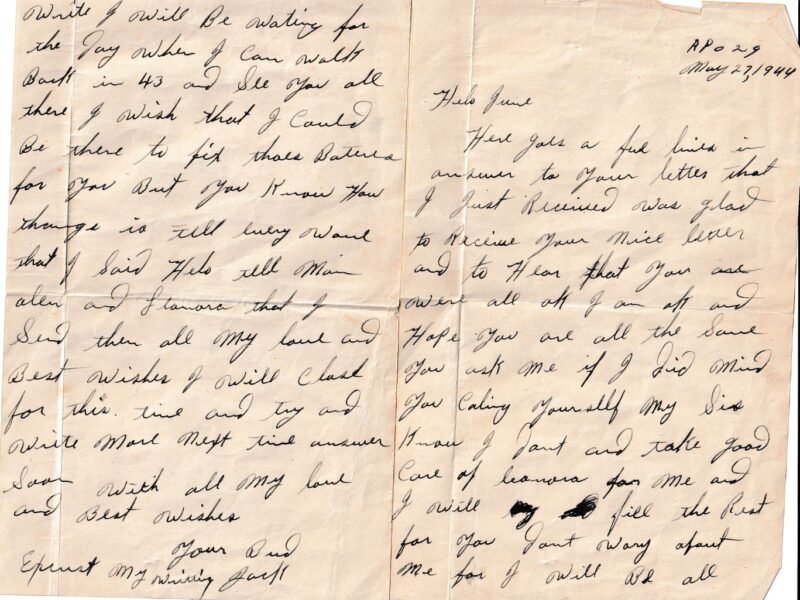 APO 29
May 27, 1944
Helo June
Here goes a few lines in
answer to your letter that
I Just Received was glad
to Receive your nice letter
and to Hear that you
were all ok I am ok and
Hope you are all the Same
you ask me if I Did Mind
you Caling yourself My Sis
Know I Dont and take good
Care of leanora for Me and
I will fill the Rest
for you Dont wory about
Me for I will Be all
write I will Be wating for
the Day when I Can walk
Back in 43 and See you all
there I wish that I Could
Be there to fix thoes
for you But you Know How
things is tell every wone
that I Said Helo tell Mom
alen and Leanora that I
Send them all My love and
Best wishes I will Close
for this. time and try and
write More Next time answer
Soon with all My love
and Best wishes
your Bud
My writing Jack